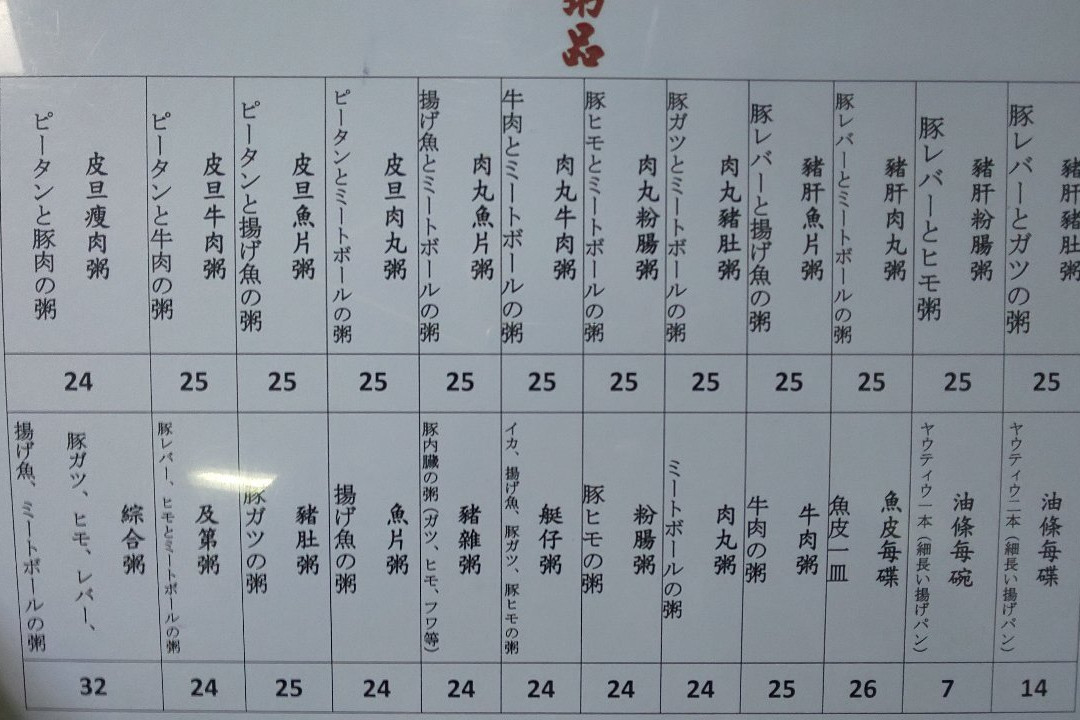 粥品
豬肝豬肚粥
豚レバーとガツの粥
25
豬肝粉腸粥
豚レバーとヒモ粥
25
豬肝肉丸粥
豚レバーとミートボールの粥
25
豬肝魚片粥
豚レバーと揚げ魚の粥
25
肉丸豬肚粥
豚ガツとミートボールの粥
25
肉丸粉腸粥
豚ヒモとミートボールの粥
25
肉丸牛肉粥
牛肉とミートボールの粥
25
肉丸魚片粥
揚げ魚とミートボールの粥
25
皮旦肉丸粥
ピータンとミートボールの粥
25
皮旦魚片粥
ピータンと揚げ魚の粥
25
皮旦牛肉粥
ピータンと牛肉の粥
25
皮旦瘦肉粥
ピータンと豚肉の粥
24
油條每碟
ヤウティウ二本（細長い揚げパン）
14
油條每碗
ヤウティウ一本（細長い揚げパン）
7
魚皮每碟
魚皮一皿
26
牛肉粥
牛肉の粥
25
肉丸粥
ミートボールの粥
24
粉腸粥
豚ヒモの粥
24
艇仔粥
イカ、揚げ魚、豚ガツ、豚ヒモの粥
24
豬雜粥
豚内臓の粥（ガツ、ヒモ、フワ等）
24
魚片粥
揚げ魚の粥
24
豬肚粥
豚ガツの粥
25
及第粥
豚レバー、ヒモとミートボールの粥
24
綜合粥
豚ガツ、ヒモ、レバー、
揚げ魚、ミートボールの粥
32